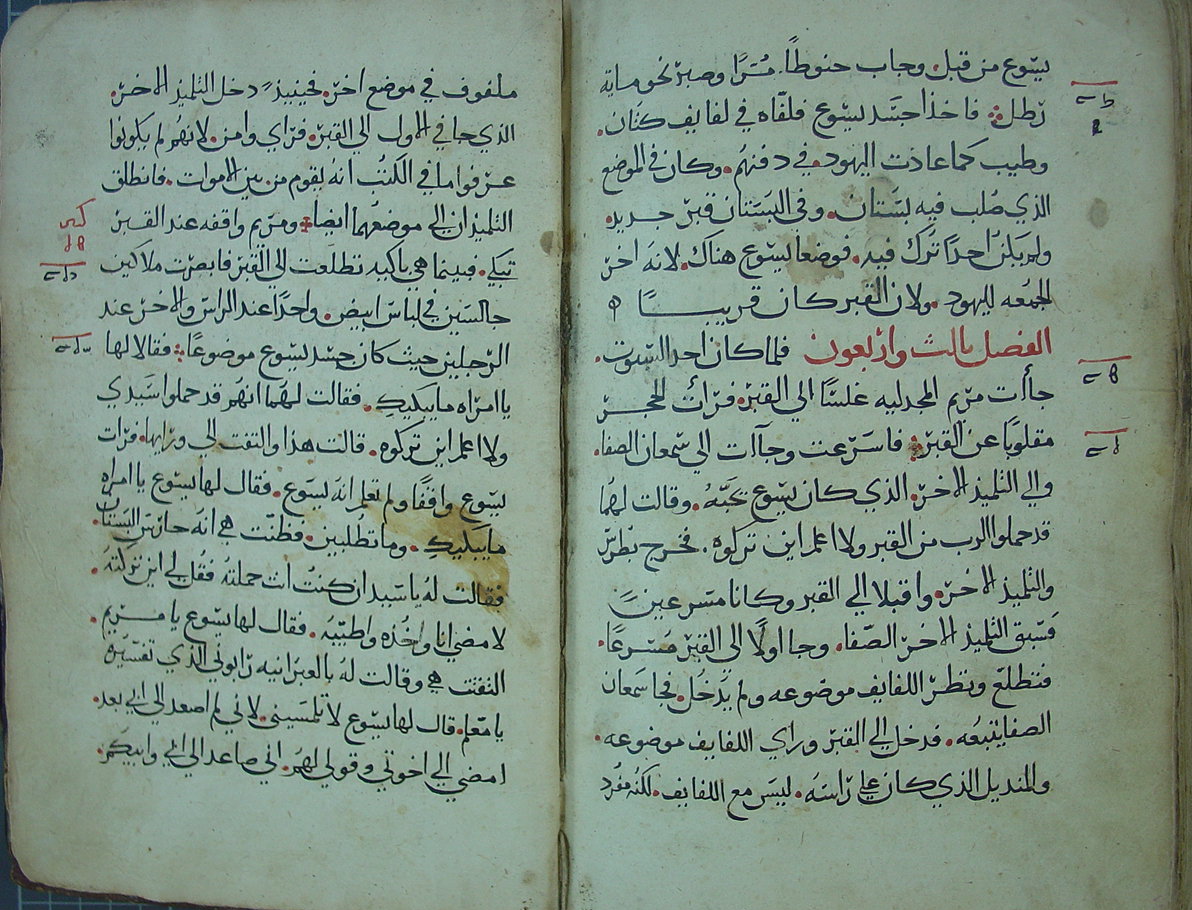 يسوع من قبل. وجاب حنوطًا. مُرّا وصبر نحو ماية
رطل: فاخذا جسد يسوع فلفّاه في لفايف كتان.
وطيب كما عادت اليهود. في دفنهُم. وكان في الموضع
الذي صُلب فيه بستان. وفي البستان قبر جديد.
ولم يكن احدًا ترك فيه. فوضعا يسوع هناك. لانه اخر
الجمعه لليهود. ولان القبر كان قريبًا
الفصل ثالث واربعون فلما كان احد السبوت.
جأت مريم المجدليه غلسًا الى القبر. فرأت الحجر
مقلوبًا عن القبر: فاسرعت وجآت الي سمعان الصفا.
والي التلميذ الاخر. الذي كان يسوع يحبّهُ. وقالت لهُما
قد حملوا الرب من القبر ولا اعلم اين تركوه. فخرج بطرس
والتلميذ الاخر. واقبلا الي القبر وكانا مسرعين
فسبق التلميذ الاخر الصّفا. وجا اولًا الي القبر مُسرعًا.
فتطلع ونظر اللفايف موضوعه ولم يدخُل. فجا سمعان
الصفا يتبعُه. فدخل الي القبر وراي اللفايف موضوعه.
والمنديل الذي كان علي راسهُ. ليس مع اللفايف. لكنّه مفرد
ملفوف في موضع اخر. فحينيذٍ دخل التلميذ الاخر.
الذي جا في الاول الي القبر. فراي وامن. لانهُم لم يكونوا
عرفوا ما في الكتُب انهُ يقوم من بين الاموات. فانطلق
التلميذان الي موضعهُما ايضا. ومريم واقفه عند القبر
تبكي. فبينما هي باكيه تطلعت الي القبر فابصرت ملاكين
جالسين في لباس ابيض. واحدًا عند الراس والاخر عند
الرجلين حيث كان جسد يسوع موضوعًا: فقالا لها
يا امراه ما يبكيك. فقالت لهُما انهُم قد حملوا سيدي
ولا اعلم اين تركوه. قالت هذا والتفت الي ورايها. فرات
يسوع واقفًا ولم تعلم انه يسوع. فقال لها يسوع يا امراه
ما يبكيكِ. وما تطلبين. فظنّت هي انه حارس البستان.
فقالت لهُ يا سيد ان كنتُ انت حملتهُ فقُل لي اين تركتهُ.
لامضي انا واخُذه واطيّبه. فقال لها يسوع يا مريم.
التفتت هي وقالت لهُ بالعبرانيه رابوني الذي تفسيره
يا معلم. قال لها يسوع لا تلمسيني. لاني لم اصعد الي ابي بعد.
امضي الي اخوتي وقولي لهُم. اني صاعد الي ابي وابيكم.